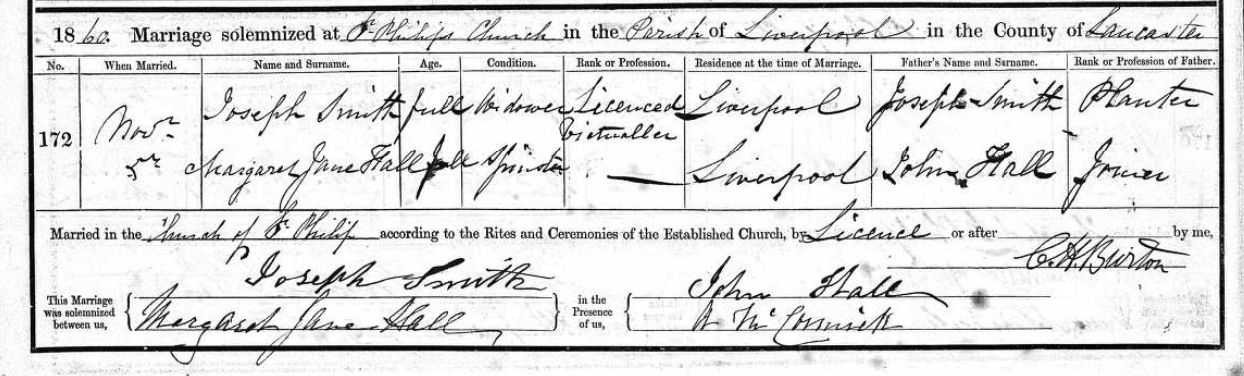 1860. Marriage solemnized at St Philips Church in the Parish of Liverpool in the County of Lancaster
No. When Married. Name and Surname. Age. Condition. Rank or Profession. Residence at the time of Marriage. Father's Name and Surname. Rank or Profession of Father.
172 Novr 5th Joseph Smith full Widower Licenced Victualler Liverpool Joseph Smith Planter
Margaret Jane Hall full Spinster — Liverpool John Hall Joiner
Married in the Church of St Philip according to the Rites and Ceremonies of the Established Church, by Licence or after by me,
C. H. Burton
This Marriage was solemnized between us, Joseph Smith in the Presence of us, John Hall
Margaret Jane Hall